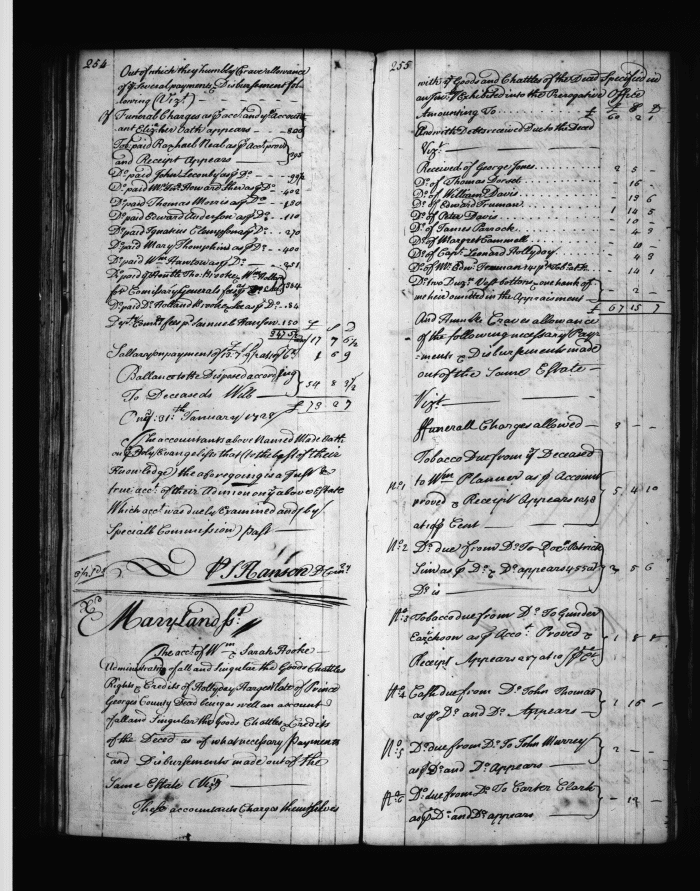 254
Out of which they humbly Crave allowance
of ye Several payments & Disbursements fol-
lowing (Vizt) - - - -
Of Funeral Charges as p acct and ye accountt
ant Eliz her Oath appears - - 800
To paid Raphael Neale as p acct proved
and Receipt Appears - - 395
Do paid John Lecomte as p Do - -
Do paid Mr Jos Howard Shea as p Do - 402
Do paid Thomas Morris as p Do - 180
Do paid Edward Anderson as p Do - 110
Do paid Ignatius as p Do - 270
Do paid Mary Thompkins as p Do - 400
Do paid Wm as p Do - 251
Do paid Thos Brooke
for Comissary Generals fees as p 384
Do paid Do Holland Brooke as p Do - 84
Depty Comrs fees p Samuel Hanson 150 £ S D
17 7 6½
Sallary on payment of £ 1 6 9
Ballance to be Disposed according
To Deceaseds Will - 54 8 3½
£ 73 2 7
31th January 1728
The accountants above Named Made Oath
on ye Holy Evangelist that (to the best of their
Knowledge) the aforegoing is a Just &
true acct of their Admion on ye above Estate
Which acct was duely Examined and (by
Speciall Commission) past
p S Hanson D Comry
Ex
Maryland ss.
The acct of Wm & Sarah Hooke
Administrators of all and Singular the Goods Chattles
Rights & Credits of Hollyday late of Prince
Georges County Decd being as well an account
of all and Singular the Goods Chattles & Credits
of the Decd as of what necessary Payments
and Disbursments made out of the
Same Estate (Vizt)
These accountants Charges themselves
255
with ye Goods and Chattles of the Decd Specified in
an Inv Exhibited into the Prerogative Office
Amounting To - - £ 60 2 1
And with Debts received Due to the Decd
Vizt
Received of George Jones - 2 5 -
Do of Thomas Dorset - 16 -
Do of William Davis - 13 6
Do of Edward Truman - 1 14 5
Do of Peter Davis - 10 -
Do of James Parrock - 4 3
Do of Margret Cammell - 10 -
Do of Capt Leonard Hollyday - 4 3
Do of Mr Edw Truman - 14 1
Do two Duzn Vest buttons, one hank of
mohair omitted in the Appraisment - 2 -
£ 67 15 7
And Craves allowance
of the following necessary Pay-
ments & Disbursments made
out of the Same Estate -
Vizt
ffunerall Charges allowed - 3 - -
No 1 Tobacco Due from ye Deceased
to Wm Planner as p Account
proved & Receipt Appears 1048
at 10 p Cent - 5 4 10
No 2 Do due from Do To Doct Patrick
Sim as p Do & Do appears 455 at
Do is - 2 5 6
No 3 Tobacco due from Do To Gunder
Earickson as p Acct Proved &
Receipt Appears 287 at 10 p Ct - 1 8 8
No 4 Cash due from Do John Thomas
as p Do and Do Appears - 2 15 -
No 5 Do due from Do To John Murrey
as p Do and Do Appears - 2 - -
No 6 Do due from Do To Carter Clark
as p Do and Do appears - 19 -